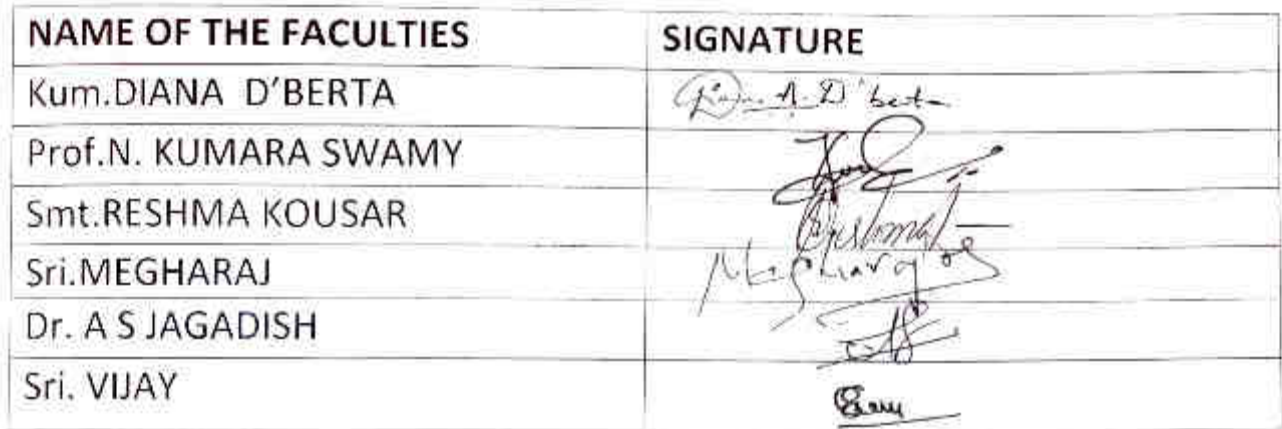 NAME OF THE FACULTIES SIGNATURE
Kum.DIANA D'BERTA D'berta
Prof.N. KUMARA SWAMY
Smt.RESHMA KOUSAR Reshma
Sri.MEGHARAJ Megharaj
Dr. A S JAGADISH
Sri. VIJAY